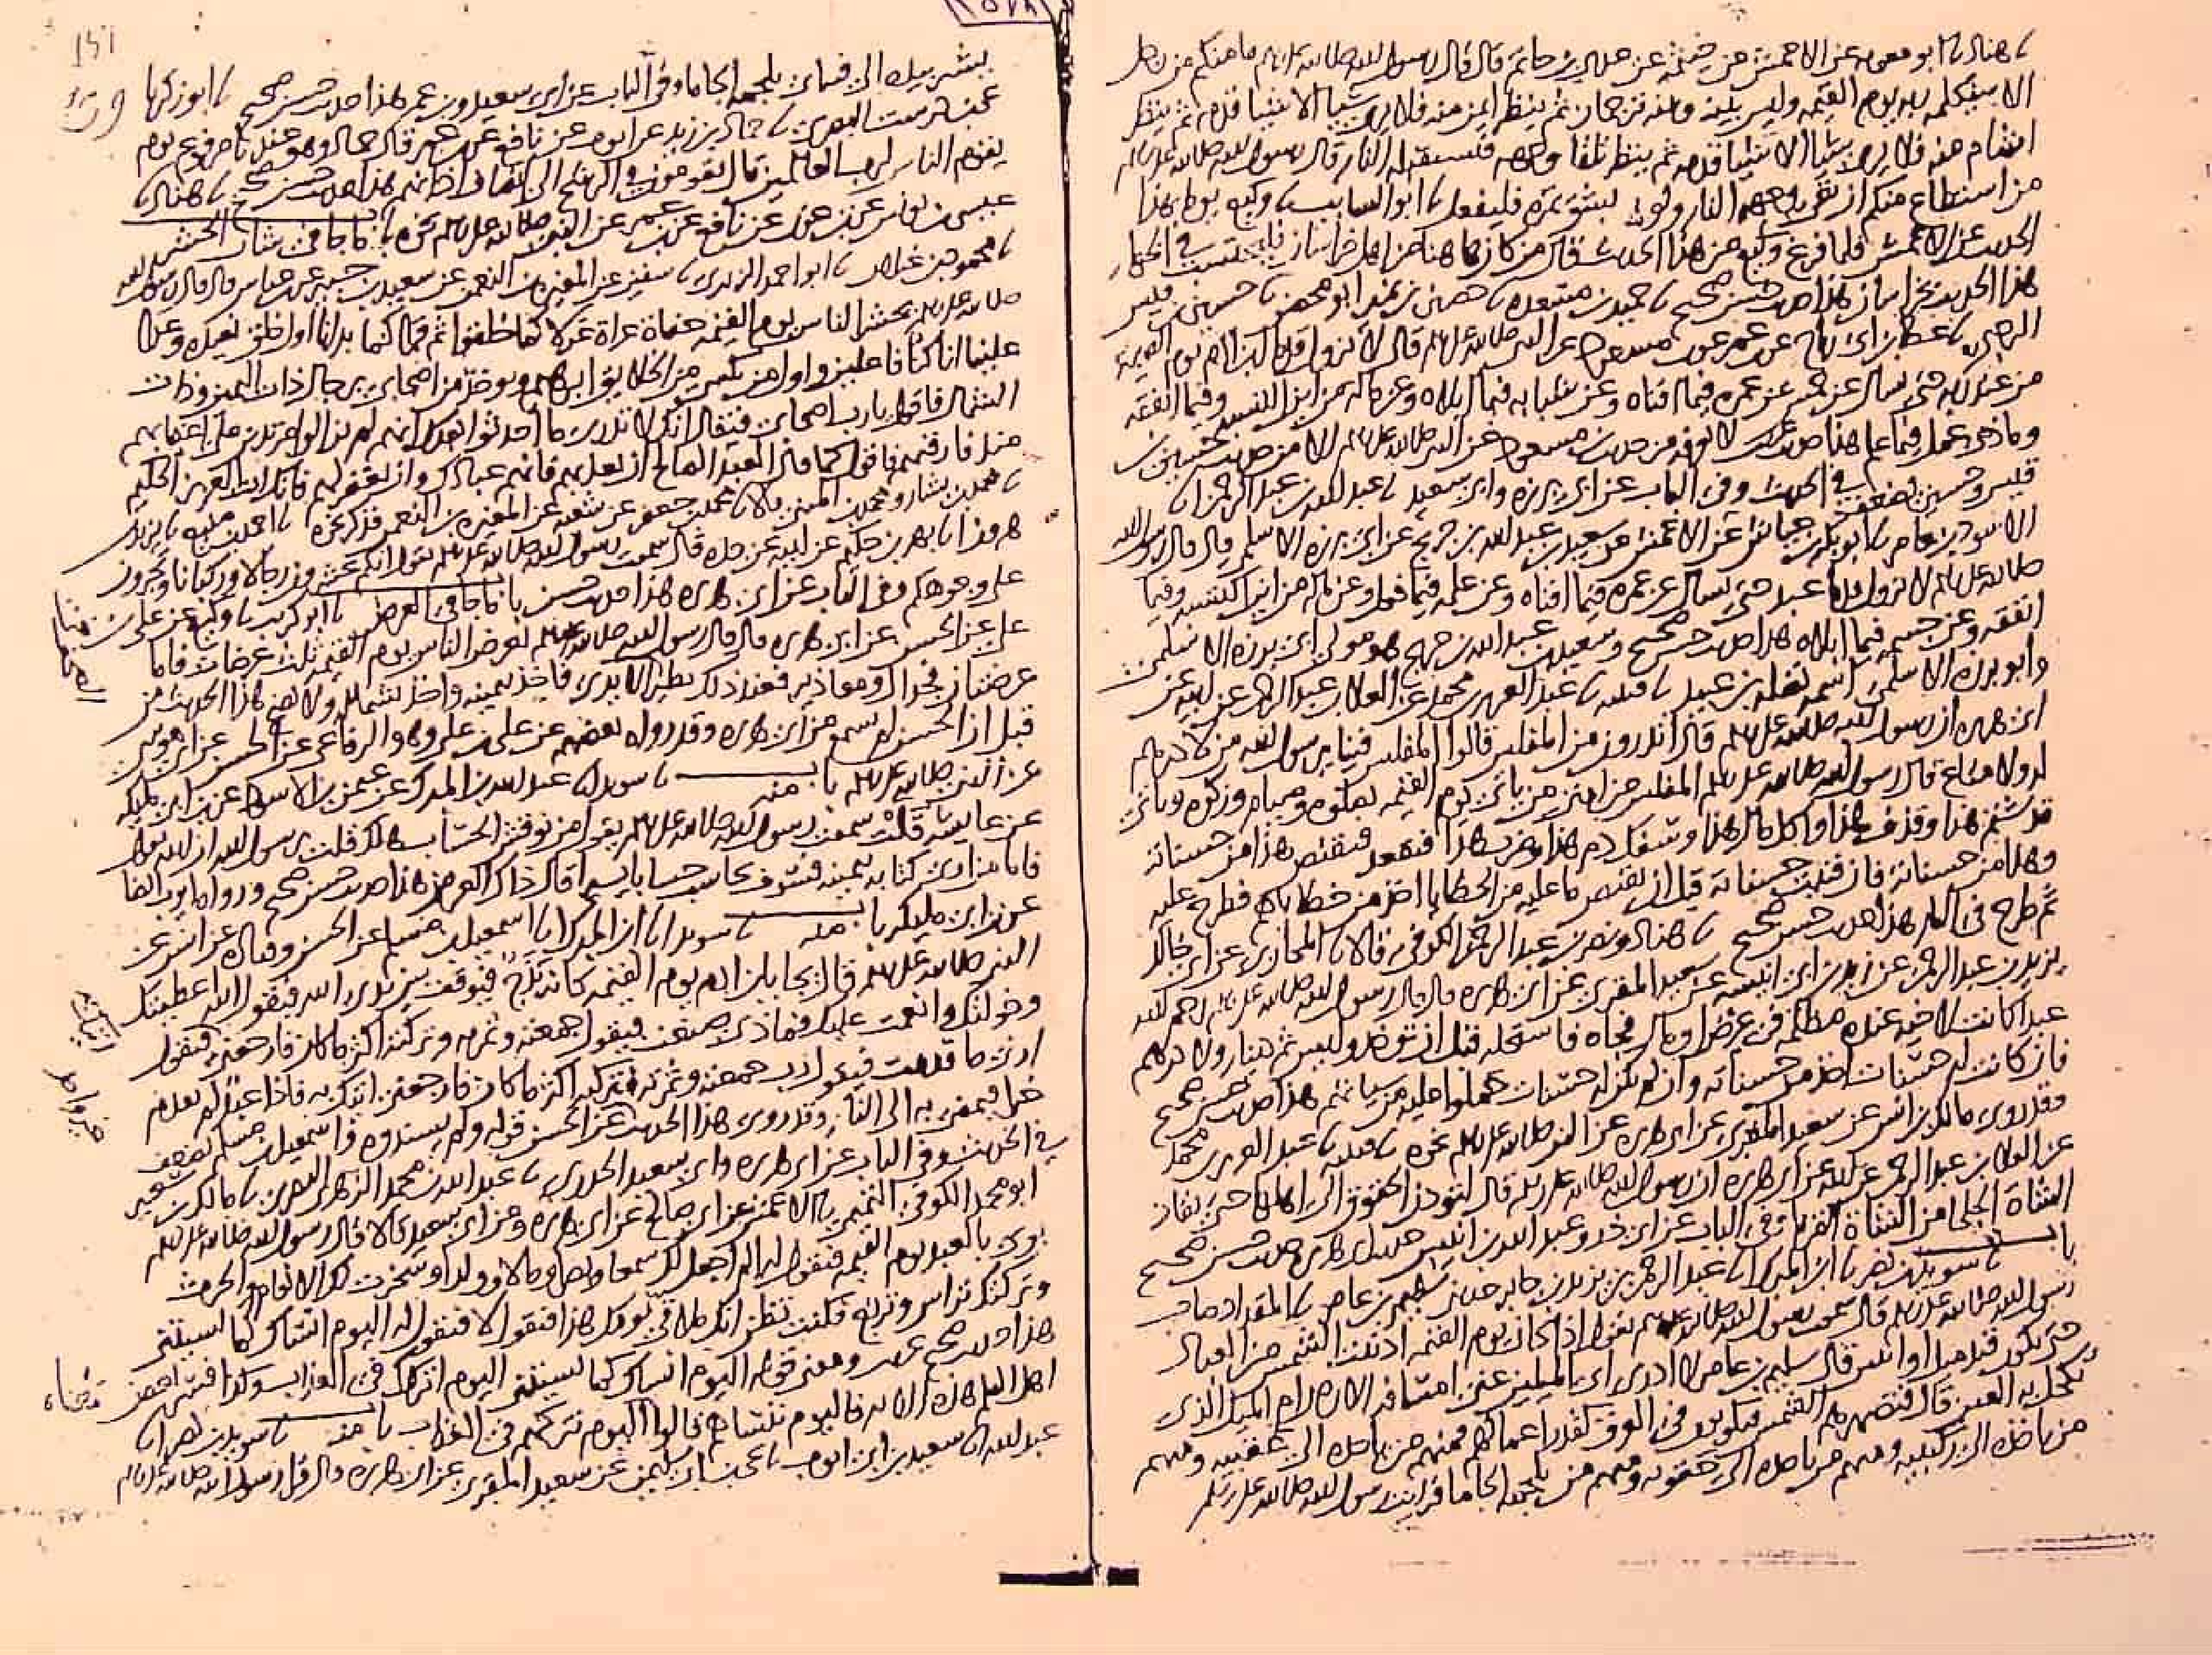 ثنا هناد ثنا ابو معويه عن الاعمش عن خيثمه عن عدى بن حاتم قال قال رسول الله صلى الله عليه وسلم ما منكم من رجل
الا سيكلمه ربه يوم القيمه وليس بينه وبينه ترجمان ثم ينظر ايمن منه فلا يرى شيا الا شيئا قدمه ثم ينظر
اشام منه فلا يرى شيئا الا شيئا قدمه ثم ينظر تلقا وجهه فتستقبله النار قال رسول الله صلى الله عليه وسلم
من استطاع منكم ان يقى وجهه النار ولو بشق تمره فليفعل ثنا ابو السايب ثنا وكيع يوما بهذا
الحديث عن الاعمش فلما فرغ وكيع من هذا الحديث قال من كان هاهنا من اهل خراسان فليحتسب في اظهار
هذا الحديث بخراسان هذا حديث حسن صحيح ثنا حميد بن مسعده ثنا حصين بن نمير ابو محصن ثنا حسين بن قيس
الرحبي ثنا عطا بن ابي رباح عن بن عمر عن بن مسعود عن النبي صلى الله عليه وسلم قال لا تزول قدما ابن ادم يوم القيمة
من عند ربه حتى يسال عن خمس عن عمره فيما افناه وعن شبابه فيما ابلاه وعن ماله من اين اكتسبه وفيما انفقه
وماذا عمل فيما علم هذا حديث غريب لا نعرفه من حديث بن مسعود عن النبي صلى الله عليه وسلم الا من حديث حسين بن
قيس وحسين يضعف في الحديث وفي الباب عن ابي برزه وابي سعيد ثنا عبد الله بن عبد الرحمن انا
الاسود بن عامر ثنا ابو بكر بن عياش عن الاعمش عن سعيد بن عبد الله بن جريج عن ابي برزه الاسلمي قال قال رسول الله
صلى الله عليه وسلم لا تزول قدما عبد حتى يسال عن عمره فيما افناه وعن علمه فيما فعل وعن ماله من اين اكتسبه وفيما
انفقه وعن جسمه فيما ابلاه هذا حديث حسن صحيح وسعيد بن عبد الله بن جريج هو مولى ابي برزه الاسلمي
وابو برزه الاسلمي اسمه نضله بن عبيد ثنا قتيبه ثنا عبد العزيز بن محمد عن العلا بن عبد الرحمن عن ابيه عن
ابي هريره ان رسول الله صلى الله عليه وسلم قال اتدرون من المفلس قالوا المفلس فينا يرسول الله من لا درهم
له ولا متاع قال رسول الله صلى الله عليه وسلم المفلس من امتي من ياتي يوم القيمه بصلوه وصيام وزكوه وياتي
قد شتم هذا وقذف هذا واكل مال هذا وسفك دم هذا وضرب هذا فيقعد فيقتص هذا من حسناته
وهذا من حسناته فان فنيت حسناته قبل ان يقتص ما عليه من الخطايا اخذ من خطاياهم فطرح عليه
ثم طرح في النار هذا حديث حسن صحيح ثنا هناد ونصر بن عبد الرحمن الكوفي قالا ثنا المحاربي عن ابي خالد
يزيد بن عبد الرحمن عن زيد بن ابي انيسه عن سعيد المقبري عن ابي هريره قال قال رسول الله صلى الله عليه وسلم رحم الله
عبدا كانت لاخيه عنده مظلمه في عرض او مال فجاه فاستحله قبل ان يوخذ وليس ثم دينار ولا درهم
فان كانت له حسنات اخذ من حسناته وان لم تكن له حسنات حملوا عليه من سياتهم هذا حديث حسن صحيح
وقد روى مالك بن انس عن سعيد المقبري عن ابي هريره عن النبي صلى الله عليه وسلم نحوه ثنا قتيبه ثنا عبد العزيز بن محمد
عن العلا بن عبد الرحمن عن ابيه عن ابي هريره ان رسول الله صلى الله عليه وسلم قال لتودن الحقوق الى اهلها حتى يقاد
الشاة الجلحا من الشاة القرنا وفي الباب عن ابي ذر وعبد الله بن انيس حديث ابي هريره حديث حسن صحيح
باب ثنا سويد بن نصر ثنا ابن المبرك ثنا عبد الرحمن بن يزيد بن جابر حدثني سليم بن عامر ثنا المقداد صاحب
رسول الله صلى الله عليه وسلم قال سمعت رسول الله صلى الله عليه وسلم يقول اذا كان يوم القيمه ادنيت الشمس من العباد
حتى تكون قيد ميل او اثنين قال سليم بن عامر لا ادرى اي الميلين عنى امسافه الارض ام الميل الذي
تكحل به العين قال فتصهرهم الشمس فيكونون في العرق كقدر اعمالهم فمنهم من ياخذه الى عقبيه ومنهم
من ياخذه الى ركبتيه ومنهم من ياخذه الى حقويه ومنهم من يلجمه الجاما فرايت رسول الله صلى الله عليه وسلم
يشير بيده الى فيه اي يلجمه الجاما وفي الباب عن ابي سعيد وبن عمر هذا حديث حسن صحيح ثنا ابو زكريا
يحيى بن درست البصرى ثنا حماد بن زيد عن ايوب عن نافع عن بن عمر قال حماد وهو عندنا مرفوع يوم
يقوم الناس لرب العالمين قال يقومون في الرشح الى انصاف اذانهم هذا حديث حسن صحيح ثنا هناد ثنا
عيسى بن يونس عن بن عون عن نافع عن بن عمر عن النبي صلى الله عليه وسلم نحوه باب ما جا في شان الحشر
ثنا محمود بن غيلان ثنا ابو احمد الزبيرى ثنا سفين عن المغيره بن النعمن عن سعيد بن جبير عن بن عباس قال قال رسول الله
صلى الله عليه وسلم يحشر الناس يوم القيمه حفاة عراة غرلا كما خلقوا ثم قرا كما بدانا اول خلق نعيده وعدا
علينا انا كنا فاعلين واول من يكسى من الخلايق ابرهيم ويوخذ من اصحابي برجال ذات اليمين وذات
الشمال فاقول يا رب اصحابي فيقال انك لا تدرى ما احدثوا بعدك انهم لم يزالوا مرتدين على اعقابهم
منذ فارقتهم فاقول كما قال العبد الصالح ان تعذبهم فانهم عبادك وان تغفر لهم فانك انت العزيز الحكيم
ثنا محمد بن بشار ومحمد بن المثنى قالا ثنا محمد بن جعفر عن شعبه عن المغيره بن النعمن فذكر نحوه ثنا احمد بن منيع ثنا يزيد بن
هرون انا بهز بن حكيم عن ابيه عن جده قال سمعت رسول الله صلى الله عليه وسلم يقول انكم محشورون رجالا وركبانا وتجرون
على وجوهكم وفي الباب عن ابي هريره هذا حديث حسن باب ما جا في العرض ثنا ابو كريب ثنا وكيع عن علي بن
علي عن الحسن عن ابي هريره قال قال رسول الله صلى الله عليه وسلم يعرض الناس يوم القيمه ثلث عرضات فاما
عرضتان فجدال ومعاذير فعند ذلك تطير الايدى فاخذ بيمينه واخذ بشماله ولا يصح هذا الحديث من
قبل ان الحسن لم يسمع من ابي هريره وقد رواه بعضهم عن علي بن علي وهو الرفاعي عن الحسن عن ابي موسى
عن النبي صلى الله عليه وسلم باب منه ثنا سويد انا عبد الله بن المبرك عن عثمن بن الاسود عن بن ابي مليكه
عن عايشه قلت سمعت رسول الله صلى الله عليه وسلم يقول من نوقش الحساب هلك قلت يرسول الله ان الله يقول
فاما من اوتى كتابه بيمينه فسوف يحاسب حسابا يسيرا قال ذاك العرض هذا حديث حسن صحيح ورواه ايوب ايضا
عن ابن ابي مليكه باب منه ثنا سويد انا ابن المبرك انا اسمعيل بن مسلم عن الحسن وقتاده عن انس عن
النبي صلى الله عليه وسلم قال يجا بابن ادم يوم القيمه كانه بذج فيوقف بين يدى الله فيقول الله اعطيتك
وخولتك وانعمت عليك فماذا صنعت فيقول جمعته وثمرته وتركته اكثر ما كان فارجعني فيقول
ارني ما قدمت فيقول ارب جمعته وثمرته فتركته اكثر ما كان فارجعني اتيك به فاذا عبد لم يقدم
خيرا فيمضى به الى النار وقد روى هذا الحديث عن الحسن قوله ولم يسندوه واسمعيل بن مسلم يضعف
في الحديث وفي الباب عن ابي هريره وابي سعيد الخدرى ثنا عبد الله بن محمد الزهرى البصرى ثنا مالك بن سعير
ابو محمد الكوفي التميمي ثنا الاعمش عن ابي صالح عن ابي هريره وعن ابي سعيد قالا قال رسول الله صلى الله عليه وسلم
يوتى بالعبد يوم القيمه فيقول له الم اجعل لك سمعا وبصرا ومالا وولدا وسخرت لك الانعام والحرث
وتركتك تراس وتربع فكنت تظن انك ملاقي يومك هذا فيقول لا فيقول له اليوم انساك كما نسيتني
هذا حديث صحيح غريب ومعنى قوله اليوم انساك كما نسيتني اليوم اتركك في العذاب وكذا فسر بعض
اهل العلم هذه الايه فاليوم ننساهم قالوا اليوم نتركهم في العذاب باب منه ثنا سويد بن نصر انا
عبد الله انا سعيد بن ابي ايوب ثنا يحيى بن ابي سليمن عن سعيد المقبرى عن ابي هريره قال قرا رسول الله صلى الله عليه وسلم